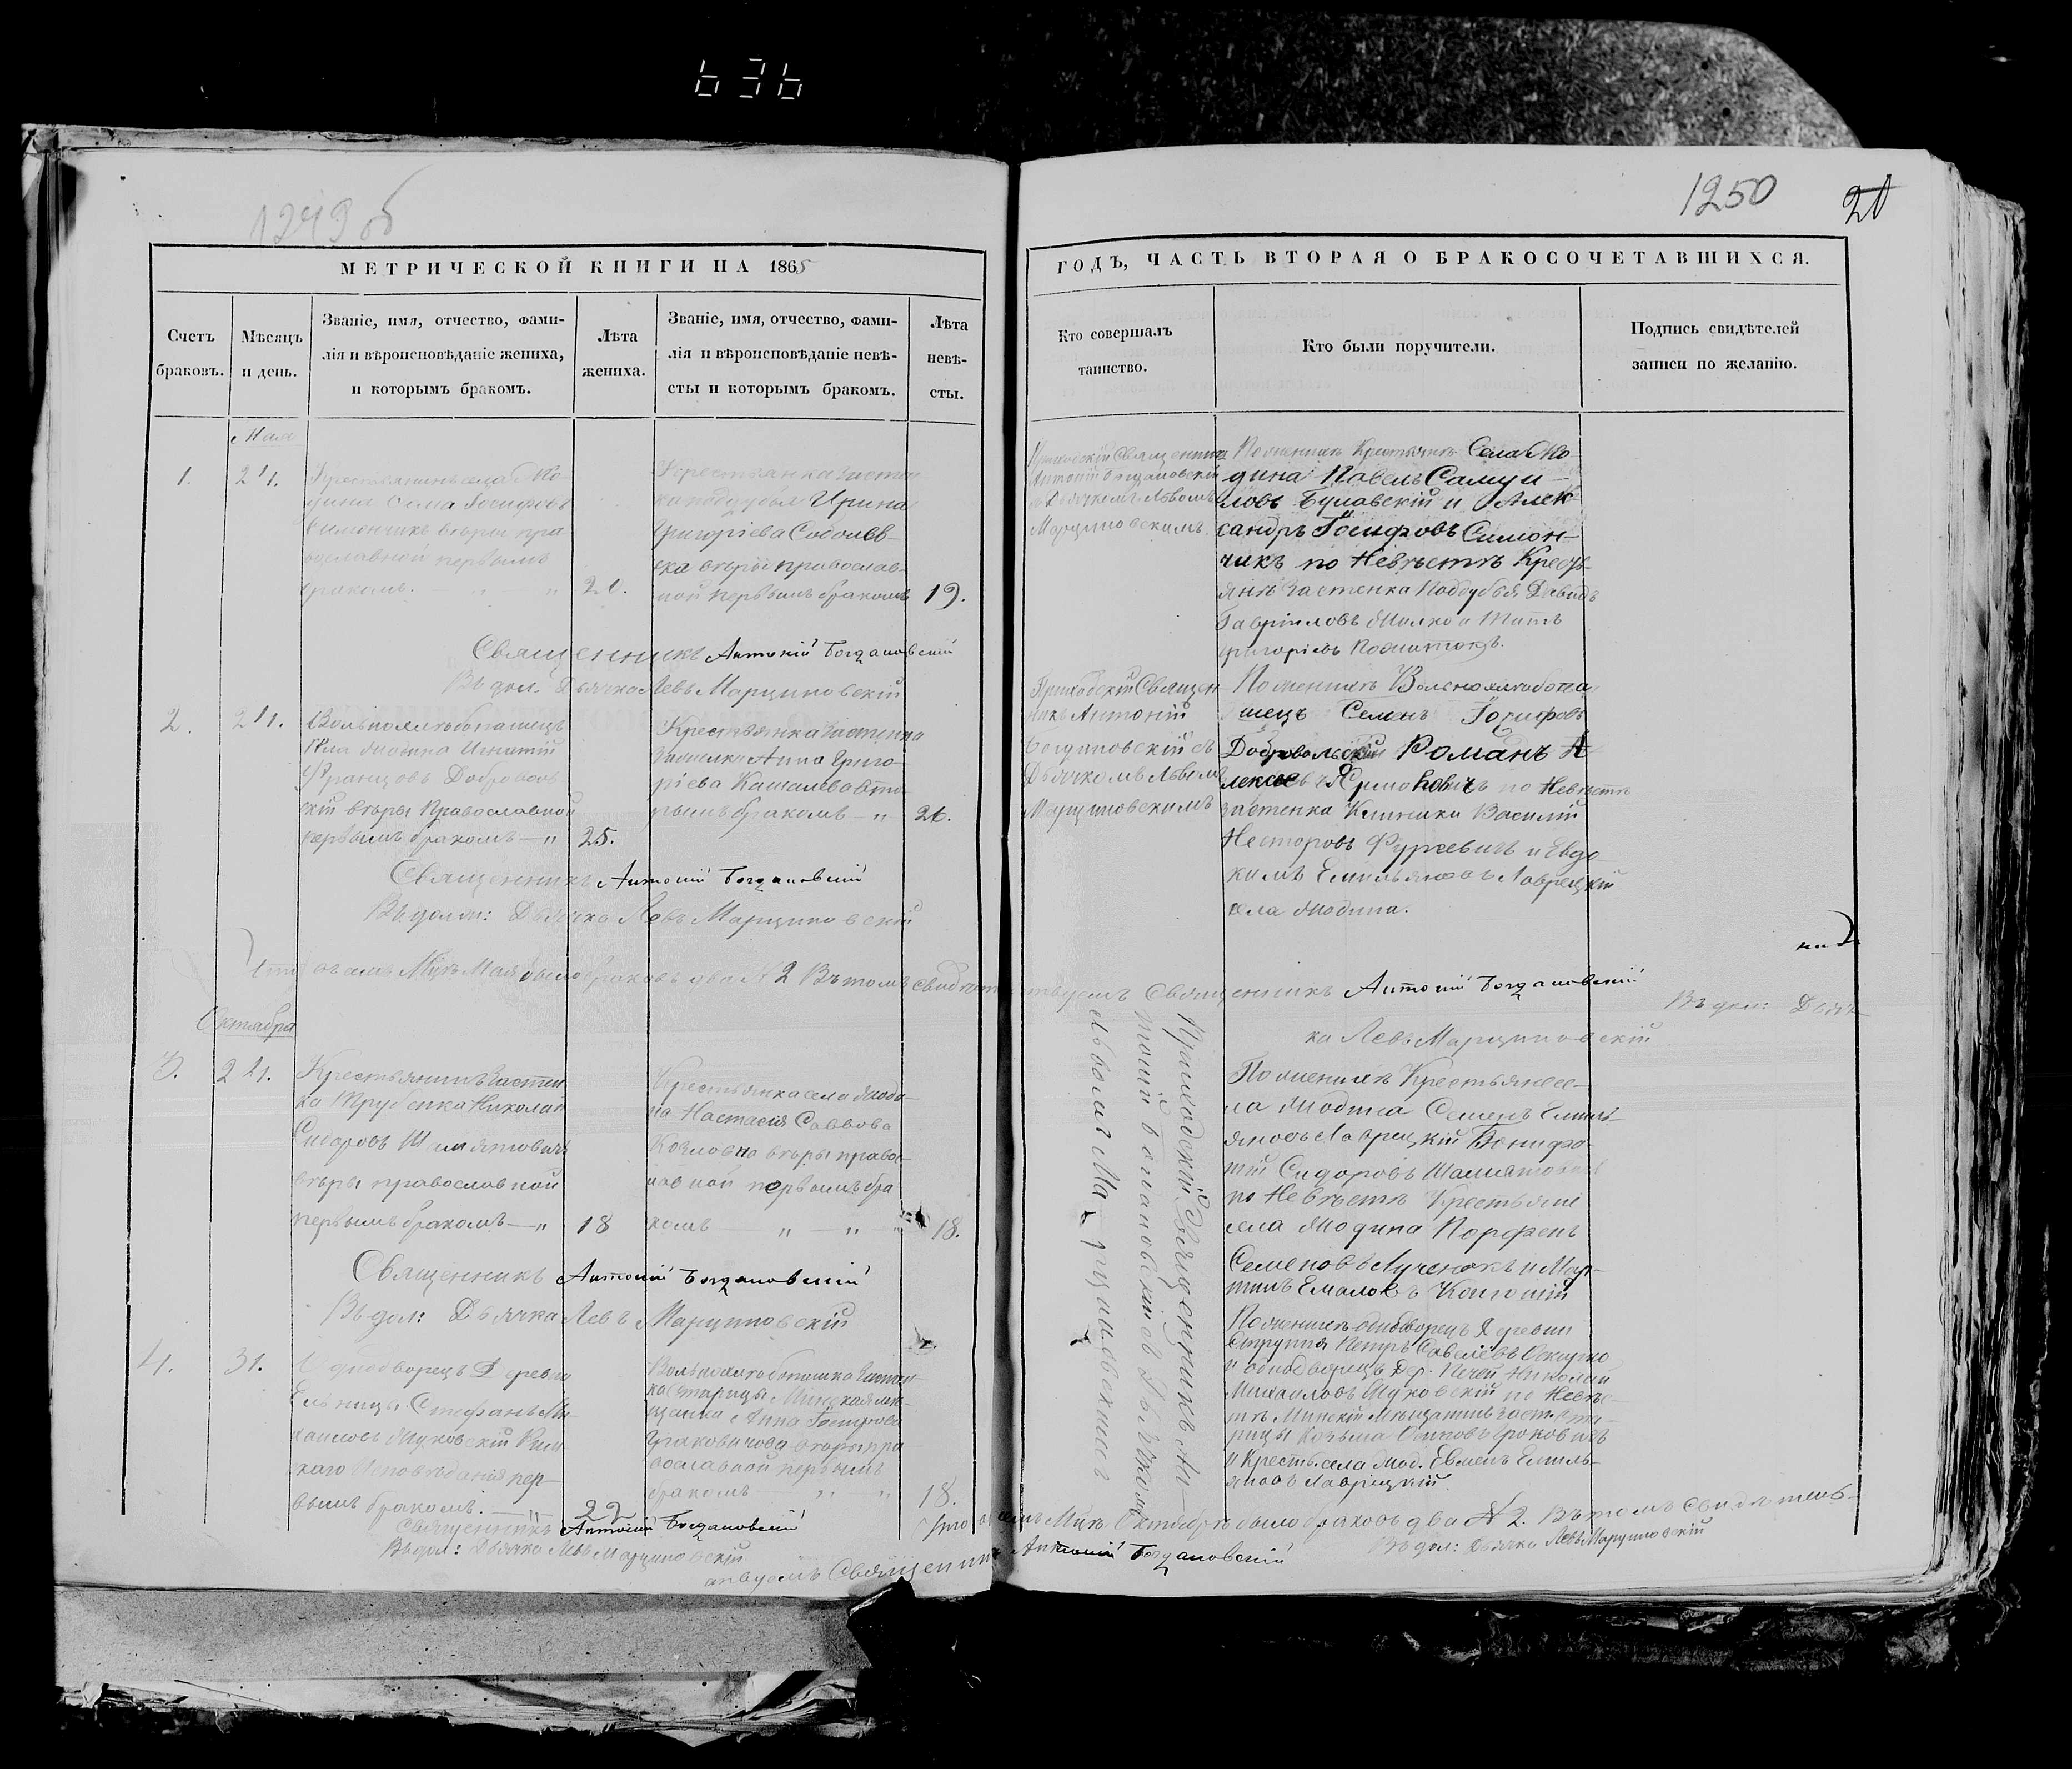 636
1249 об
1250
20
МЕТРИЧЕСКОЙ КНИГИ НА 1865
ГОДЪ, ЧАСТЬ ВТОРАЯ О БРАКОСОЧЕТАВШИХСЯ.
Счетъ
браковъ.
Мѣсяцъ
и день.
Званіе, имя, отчество, фами-
лія и вѣроисповѣданіе жениха,
и которымъ бракомъ.
Лѣта
жениха.
Званіе, имя, отчество, фами-
лія и вѣроисповѣданіе невѣ-
сты и которымъ бракомъ.
Лѣта
невѣ-
сты.
Кто совершалъ
таинство.
Кто были поручители.
Подпись свидѣтелей
записи по желанію.
Мая
1.
21.
Крестьянинъ села Мо-
дина Іосифовъ
Симончикъ вѣры пра
вославной первымъ
бракомъ. — „ — „
Крестьянка застен
ка Поддубья Ирина
Григоріева
вѣры православ-
ной первымъ бракомъ
19.
Приходскій Священникъ
Антоній Богдановскій
съ Дьячкомъ Львомъ
Марциновскимъ.
По женихѣ Крестьяне Села Мо-
дина Павелъ Самуи-
ловъ Булавскій и Алек-
сандръ Іосифовъ Симон-
чикъ по Невѣстѣ Кресть-
яне застенка Поддубья Давидъ
Гавріиловъ и Титъ
Григоріевъ
Священникъ Антоній Богдановскій
Въ дол. Дьячка Левъ Марциновскій
2.
21.
Вольнохлѣбопашецъ
села Модина Игнатій
Францовъ Доброволь
скій вѣры Православной
первымъ бракомъ — „
25.
Крестьянка застенка
Анна Григо-
ріева вто-
рымъ бракомъ — „
Приходскій Священ-
никъ Антоній
Богдановскій съ
Дьячкомъ Львомъ
Марциновскимъ
По женихѣ Вольнохлѣбопа-
шецъ Семенъ Іосифовъ
Добровольскій Романъ А
лексеевъ Ярмоловичъ по Невѣстѣ
застенка Василій
Несторовъ Фурсевичъ и Евдо-
кимъ Емельяновъ Лаврецкій
села Модина.
Священникъ Антоній Богдановскій
Въ долж: Дьячка Левъ Марциновскій
Что въ семъ Мцѣ Маѣ было браковъ два № 2 Въ томъ свидѣтельствуемъ Священникъ Антоній Богдановскій
Въ дол: Дьяч-
ка Левъ Марциновскій
Октября
3.
24.
Крестьянинъ застен
ка Трубенка Николай
Сидоровъ Шаматовичъ
вѣры православной
первымъ бракомъ — „
18
Крестьянка села Моди-
на Настасія Саввова
Козловна вѣры правос-
лавной первымъ бра
комъ — „ — „ — „
18.
Приходскій Священникъ Ан-
тоній Богдановскій съ Дьячкомъ
Львомъ Ма-рциновскимъ
По женихѣ Крестьяне се-
ла Модина Семенъ Емель-
яновъ Лаврецкій Вонифа-
тій Сидоровъ Шаматовичъ
по Невѣстѣ Крестьяне
села Модина Порфенъ
Семеновъ Лученокъ и Мар-
тинъ
Священникъ Антоній Богдановскій
Въ дол: Дьячка Левъ Марциновскій
4.
31.
Однодворецъ Деревни
Ельницы Стефанъ Ми-
хаиловъ Жуковскій Рим-
скаго Исповѣданія пер-
вымъ бракомъ. — „
22
Вольнохлѣбопашка застен-
ка Старицы Минская мѣ-
щанка Анна Іосифова
вѣры пра
вославной первымъ
бракомъ — „ — „
18.
По женихѣ однодворецъ Деревни
Петръ Савельевъ
и однодворецъ Дер. Печей Николай
Михаиловъ Жуковскій по Невѣс-
тѣ Минскій Мѣщанинъ заст. Ста-
рицы Козьма Осиповъ
и Крестья. села Мод. Евменъ Емель-
яновъ Лаврецкій.
Священникъ Антоній Богдановскій
Въ дол: Дьячка Левъ Марциновскій
Что въ семъ Мцѣ Октябрѣ было браковъ два № 2. Въ томъ свидѣтель-
ствуемъ Священникъ Антоній Богдановскій
Въ дол: Дьячка Левъ Марциновскій